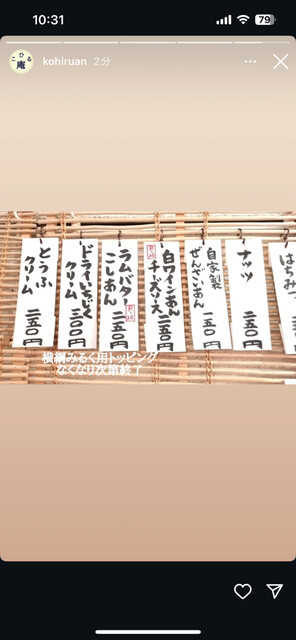 10:31
79
こひる
庵
kohiruan 2分
はちみ
ナッツ
二五〇円
自家製
ぜんざいあん
一五〇円
白ワインあん
チーズソース
二五〇円
ラムバター
こしあん
二五〇円
ドライいちじく
クリーム
三〇〇円
とうふ
クリーム
二五〇円
横綱みるく用トッピング
なくなり次第終了